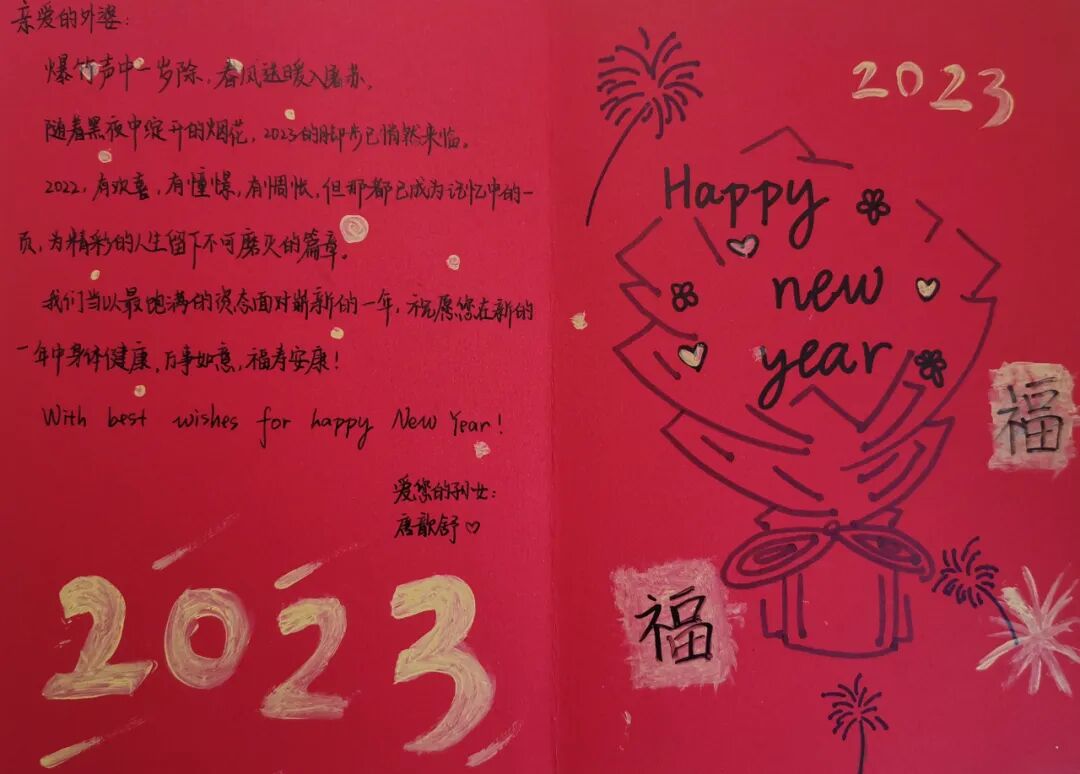 亲爱的外婆：
爆竹声中一岁除，春风送暖入屠苏。
随着黑夜中绽开的烟花，2023的脚步已悄然来临。
2022，有欢喜，有憧憬，有惆怅，但那都已成为记忆中的一
页，为精彩的人生留下不可磨灭的篇章。
我们当以最饱满的姿态面对崭新的一年，祝愿您在新的
一年中身体健康，万事如意，福寿安康！
With best wishes for happy New Year!
爱您的孙女：
唐歆舒♡
2023
2023
Happy
new
year
福
福